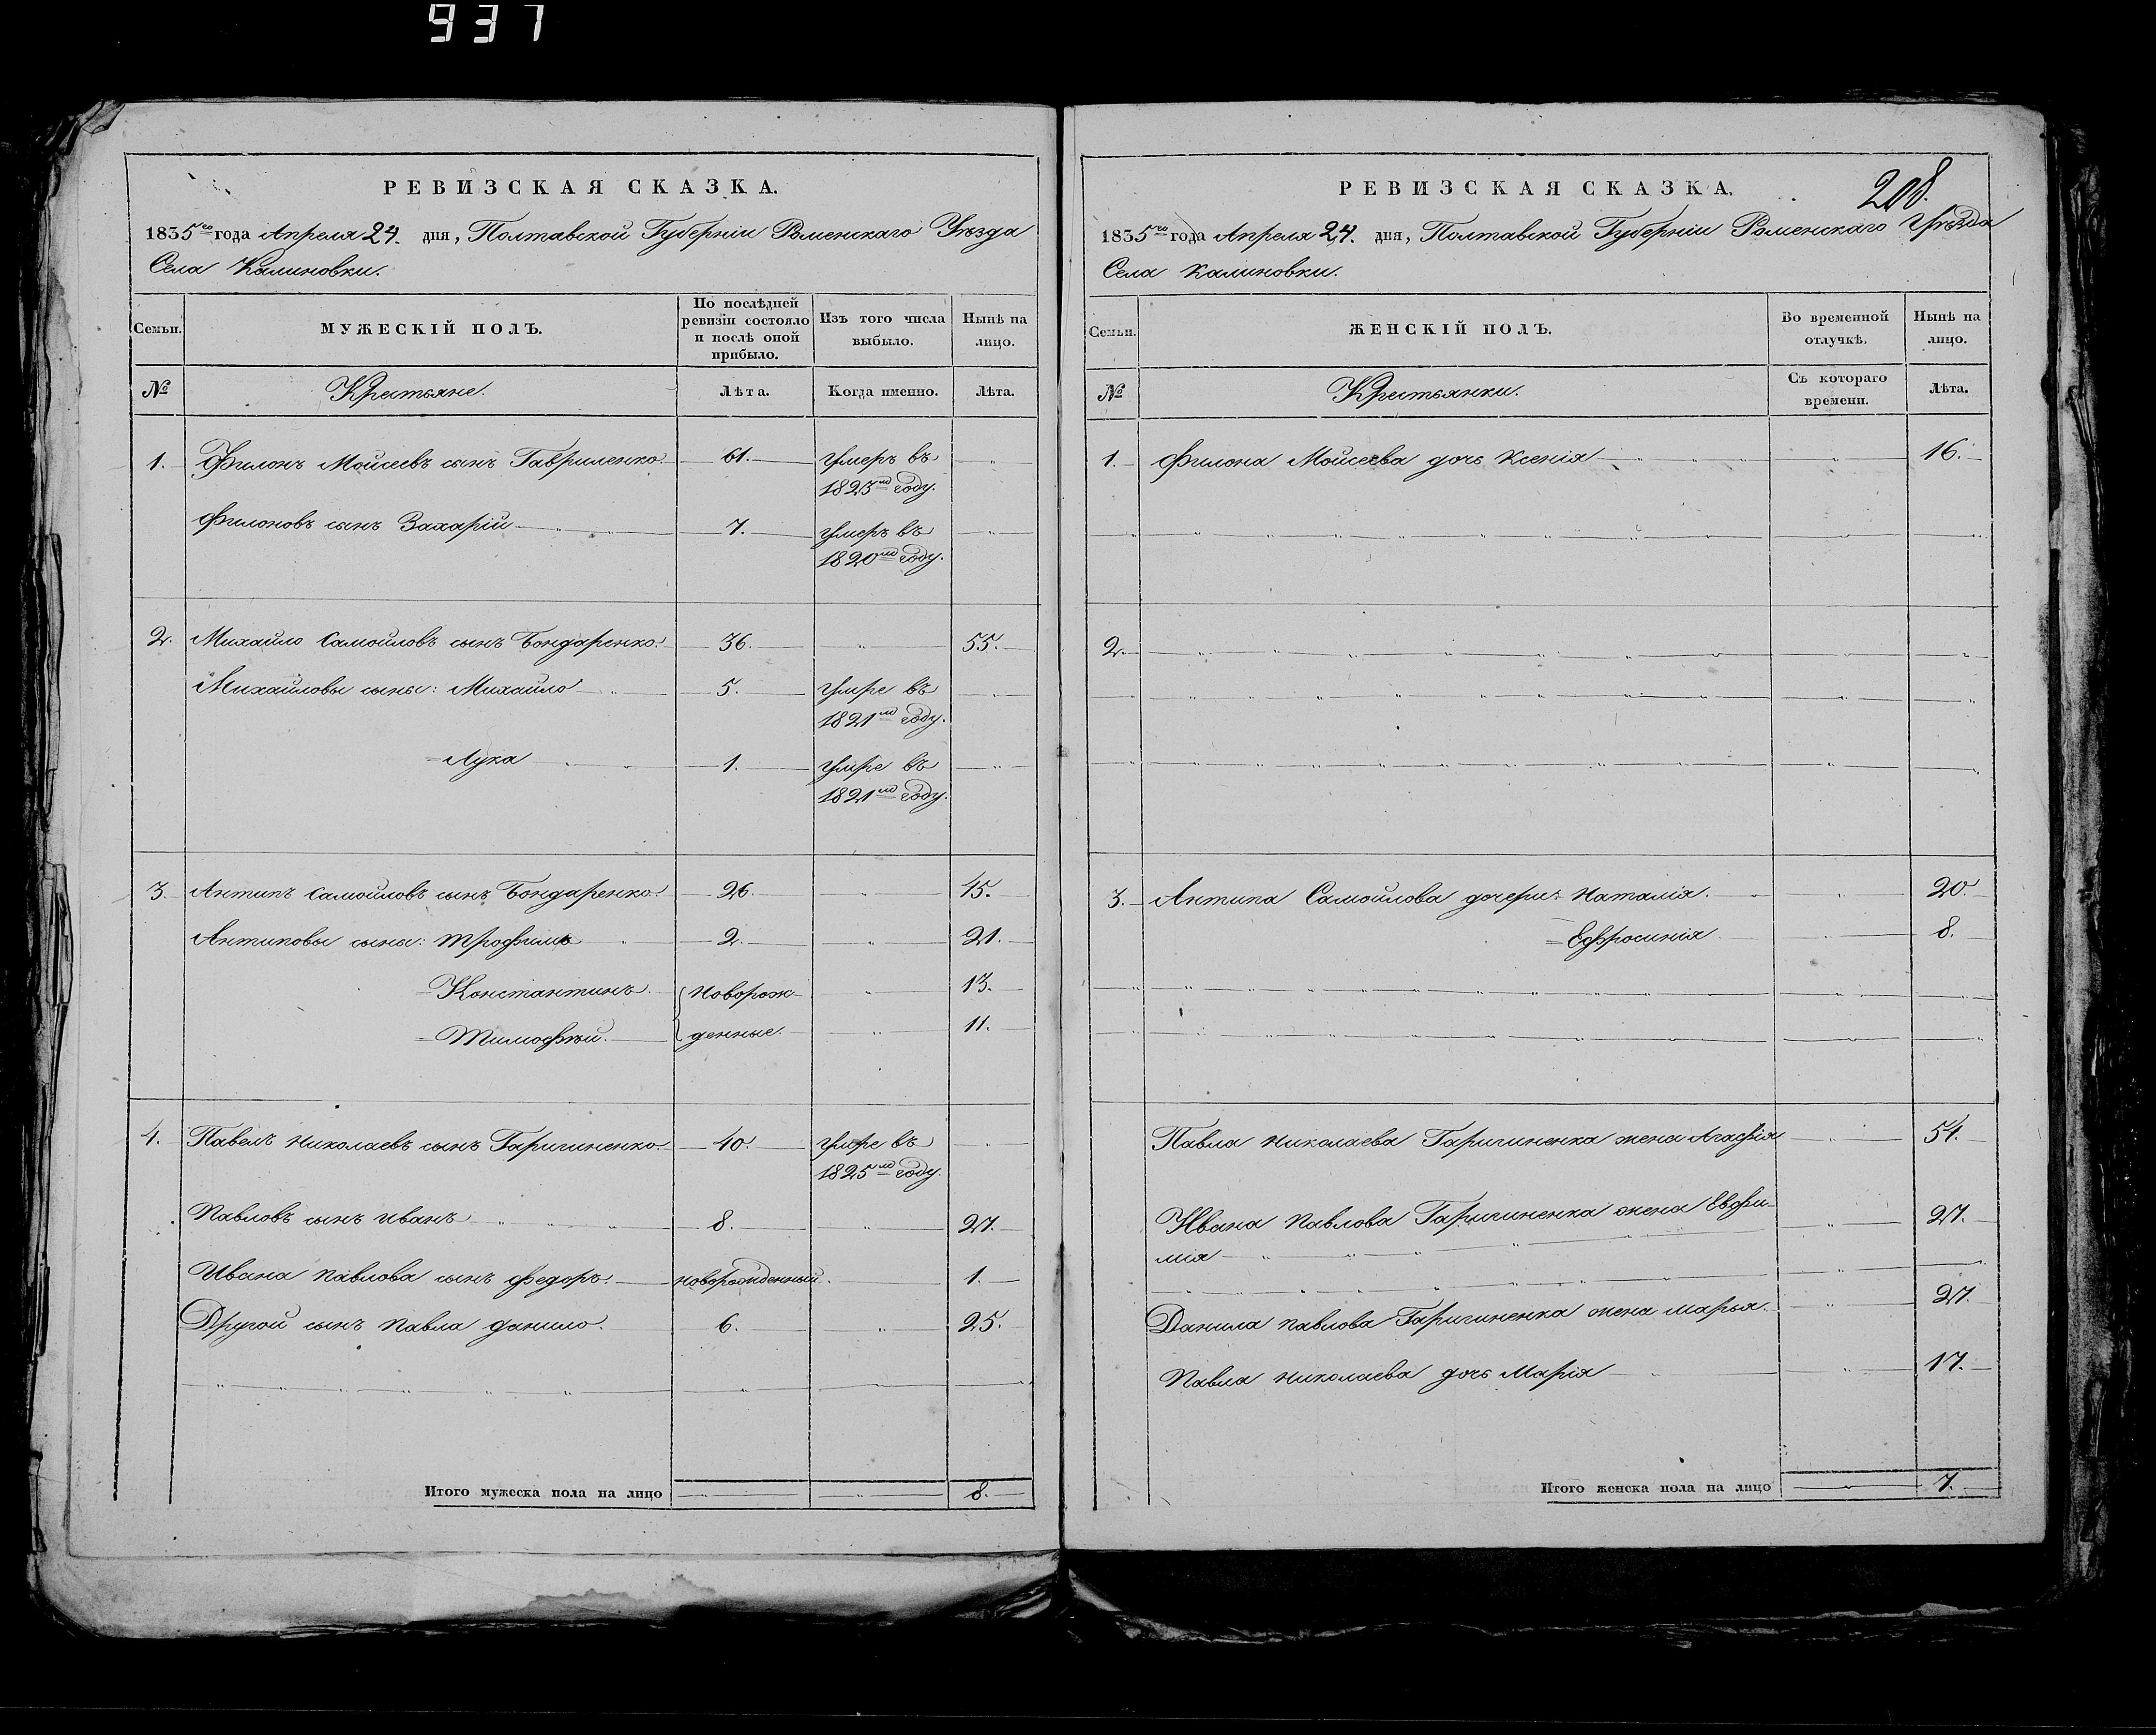 937
РЕВИЗСКАЯ СКАЗКА.
1835го года Апреля 24. дня, Полтавской Губерніи Роменскаго Уѣзда
Села Калиновки.
Семьи.
МУЖЕСКІЙ ПОЛЪ.
По послѣдней
ревизіи состояло
и послѣ оной
прибыло.
Изъ того числа
выбыло.
Нынѣ на
лицо.
№
Крестьяне.
Лѣта.
Когда именно.
Лѣта.
1. Филонъ Моисеевъ сынъ Гавриленко. 61. Умеръ въ
1823мъ году.
Филоновъ сынъ Захарій 7. Умеръ въ
1820мъ году.
2. Михайло Самойловъ сынъ Бондаренко. 36. 55.
Михайловы сыны: Михайло 5. Умре въ
1821мъ году.
Лука 1. Умре въ
1821мъ году.
3. Антипъ Самойловъ сынъ Бондаренко. 26. 45.
Антиповы сыны: Трофимъ 2. 21.
Константинъ. Новорож- 13.
Тимофѣй. денные. 11.
4. Павелъ Николаевъ сынъ Гаригиненко. 40. Умре въ
1825мъ году.
Павловъ сынъ Иванъ 8. 27.
Ивана Павлова сынъ Федоръ. новорожденный. 1.
Другой сынъ Павла Данило. 6. 25.
Итого мужеска пола на лицо 8.
208.
РЕВИЗСКАЯ СКАЗКА.
1835го года Апреля 24. дня, Полтавской Губерніи Роменскаго Уѣзда
Села Калиновки.
Семьи.
ЖЕНСКІЙ ПОЛЪ.
Во временной
отлучкѣ.
Нынѣ на
лицо.
№
Крестьянки.
Съ котораго
времени.
Лѣта.
1. Филона Моисеева дочь Ксенія 16.
2.
3. Антипа Самойлова дочери: Наталія. 20.
Ефросинія. 8.
Павла Николаева Гаригиненка жена Агафія 54.
Ивана Павлова Гаригиненка жена Евфи- 27.
мія
Данила Павлова Гаригиненка жена Марья. 27.
Павла Николаева дочь Марія 17.
Итого женска пола на лицо 7.